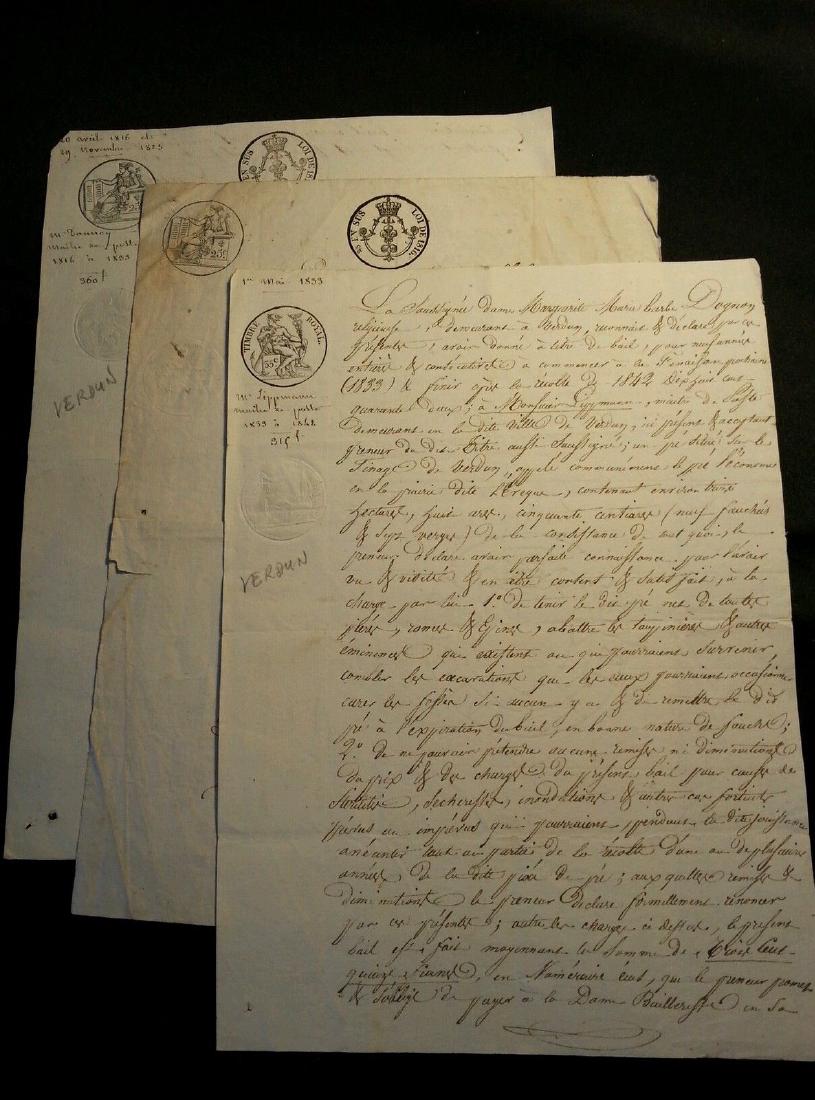 20 avril 1816 et
29 Novembre 1825
25
EN SUS
LOI DE 181
Mr Tannoy
maître de poste
1816 à 1833
360 f
VERDUN
25c
EN SUS
LOI DE 1816.
1er Mai 1833
TIMBRE ROYAL
35c
Mr Lippmann
maître de poste
1833 à 1842
315 f
VERDUN
La Soussignée dame Margueritte Marie barbe Dognon
religieuse, demeurant à Verdun, reconnait & déclare par ces
présentes, avoir donné à titre de bail, pour neuf années
entières & consécutives à commencer à la fenaison prochaine
(1833) & finir après la récolte de 1842 Dix huit cent
quarante deux; à Monsieur Lippmann, maître de Poste
demeurant en la dite ville de Verdun, ici présent & acceptant
preneur au dit titre aussi Soussigné; un pré situé Sur le
finage de Verdun, appelé communément le pré l'économe
en la prairie dite L'Evêque, contenant environ trois
hectares, huit ares, cinquante centiares (neuf fauchées
& Sept verges) de la consistance de tout quoi, le
preneur déclare avoir parfaite connaissance pour l'avoir
vu & visité & en être content & Satisfait, à la
charge par lui 1.° de tenir le dit pré net de toutes
pierres, ronces & Epines, abattre les taupinières & autres
éminences qui existent ou qui pourraient Survenir,
combler les excavations que les eaux pourraient occasionner
curer les fossés Si aucun y a & de remettre le dit
pré à l'expiration du bail, en bonne nature de fauche;
2.° de ne pouvoir prétendre aucune remises ni diminutions
du prix & des charges du présent bail pour causes de
Stérilité, Sécheresse, inondations & autres cas fortuits
prévus ou imprévus qui pourraient, pendant la dite jouissance
anéantir tout ou partie de la récolte d'une ou de plusieurs
années, de la dite pièce de pré; auxquelles remises &
diminutions le preneur déclare formellement renoncer
par ces présentes; outre les charges ci dessus, le présent
bail est fait moyennant la Somme de Trois Cent
quinze francs, en Numéraire que le preneur promet
& S'oblige de payer à la Dame Bailleresse en Sa